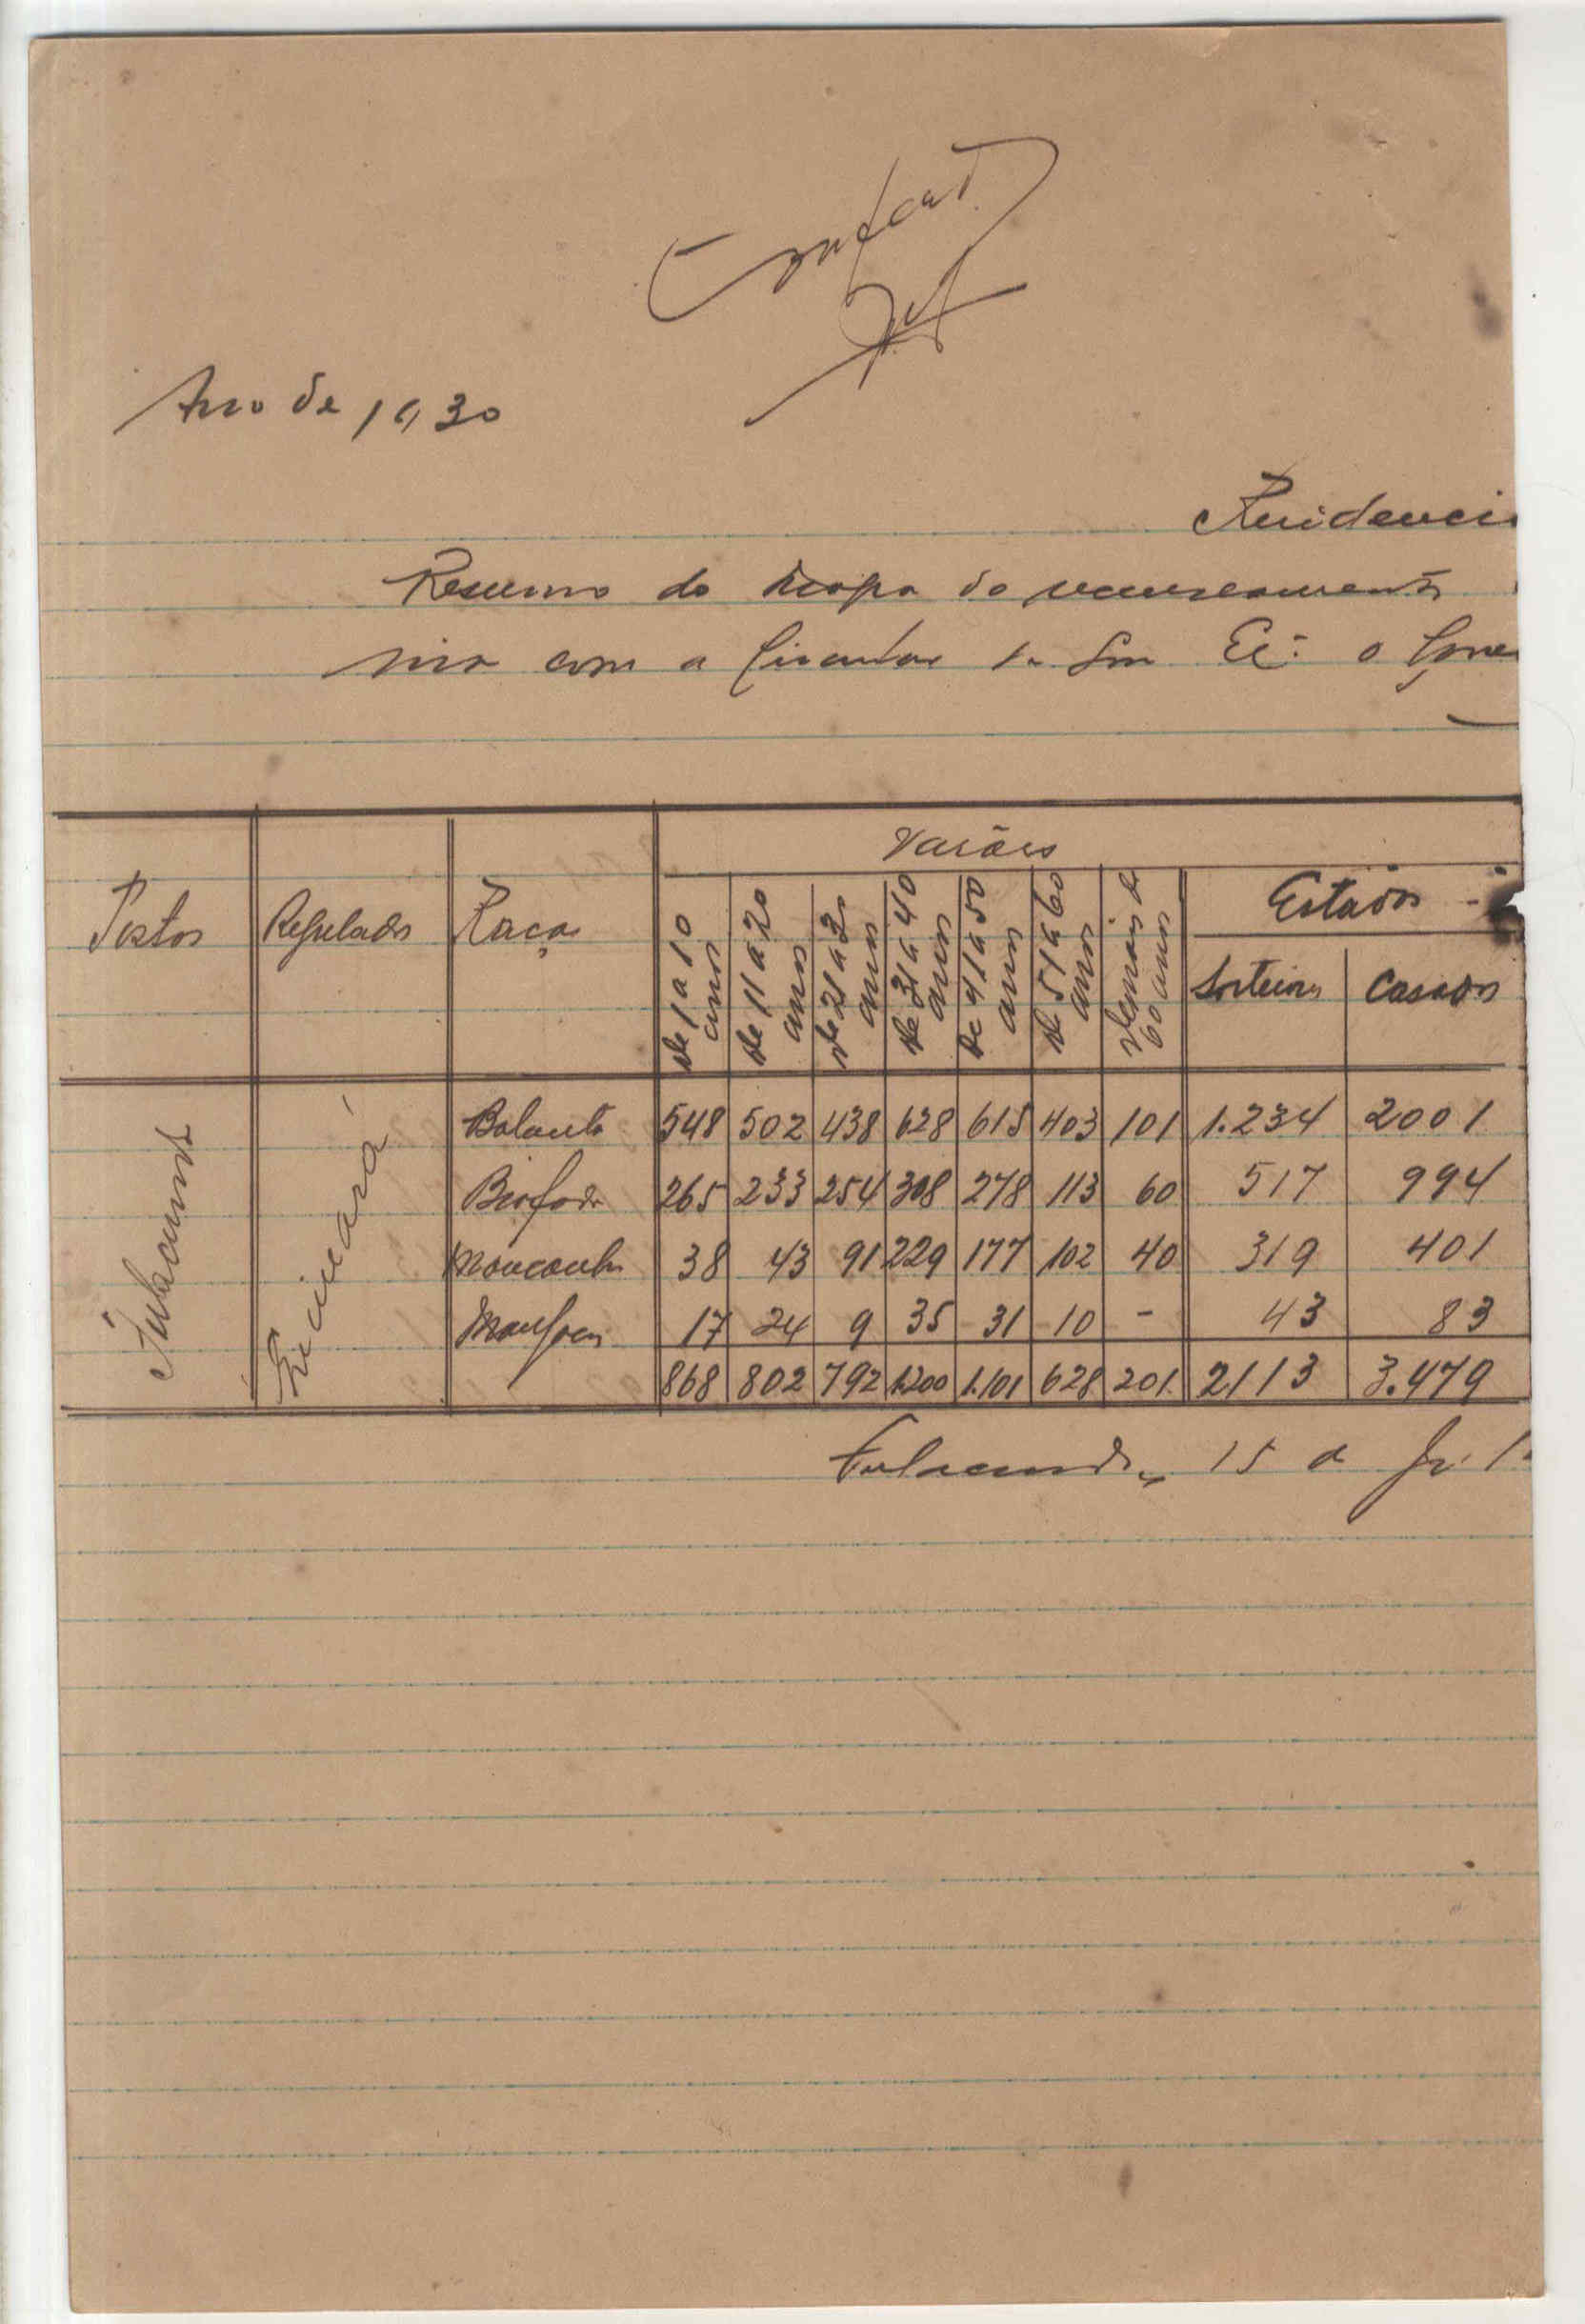 Ano de 1930
Residenci
Resumo do mapa do recenseamento
nio com a Circular de Sua Ex.ª o Gover
Varões
Postos Regulado Raças de 1 a 10 anos de 11 a 20 anos de 21 a 30 anos de 31 a 40 anos de 41 a 50 anos de 51 a 60 anos demais de 60 anos Estados
Solteiros Casados
Fulacunda
Balanta 548 502 438 628 615 403 101 1.234 2001
Biafada 265 233 254 308 278 113 60 517 994
Mancanha 38 43 91 229 177 102 40 319 401
Manjaca 17 24 9 35 31 10 - 43 83
868 802 792 1.200 1.101 628 201 2113 3.479
Fulacunda, 15 de